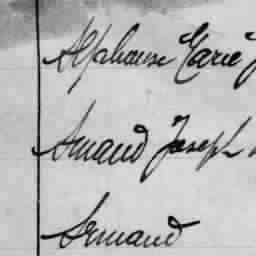 Alphonse "Marie"
Amand "Joseph
Armand